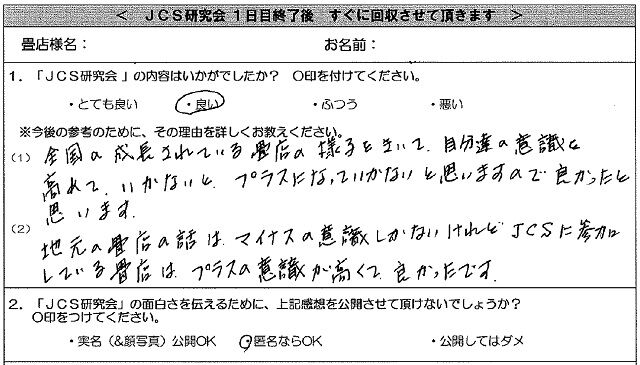 < JCS研究会 1日目終了後 すぐに回収させて頂きます >
畳店様名： お名前：
1．「JCS研究会」の内容はいかがでしたか？ ○印を付けてください。
・とても良い ・良い ・ふつう ・悪い
※今後の参考のために、その理由を詳しくお教えください。
(1) 全国の成長されている畳店の様子をきいて、自分達の意識を
高めて、いかないと、プラスになっていかないと思いますので良かったと
思います。
(2) 地元の畳店の話は、マイナスの意識しかないけれどJCSに参加
している畳店は、プラスの意識が高くて良かったです。
2．「JCS研究会」の面白さを伝えるために、上記感想を公開させて頂けないでしょうか？
○印をつけてください。
・実名（&顔写真）公開OK ・匿名ならOK ・公開してはダメ